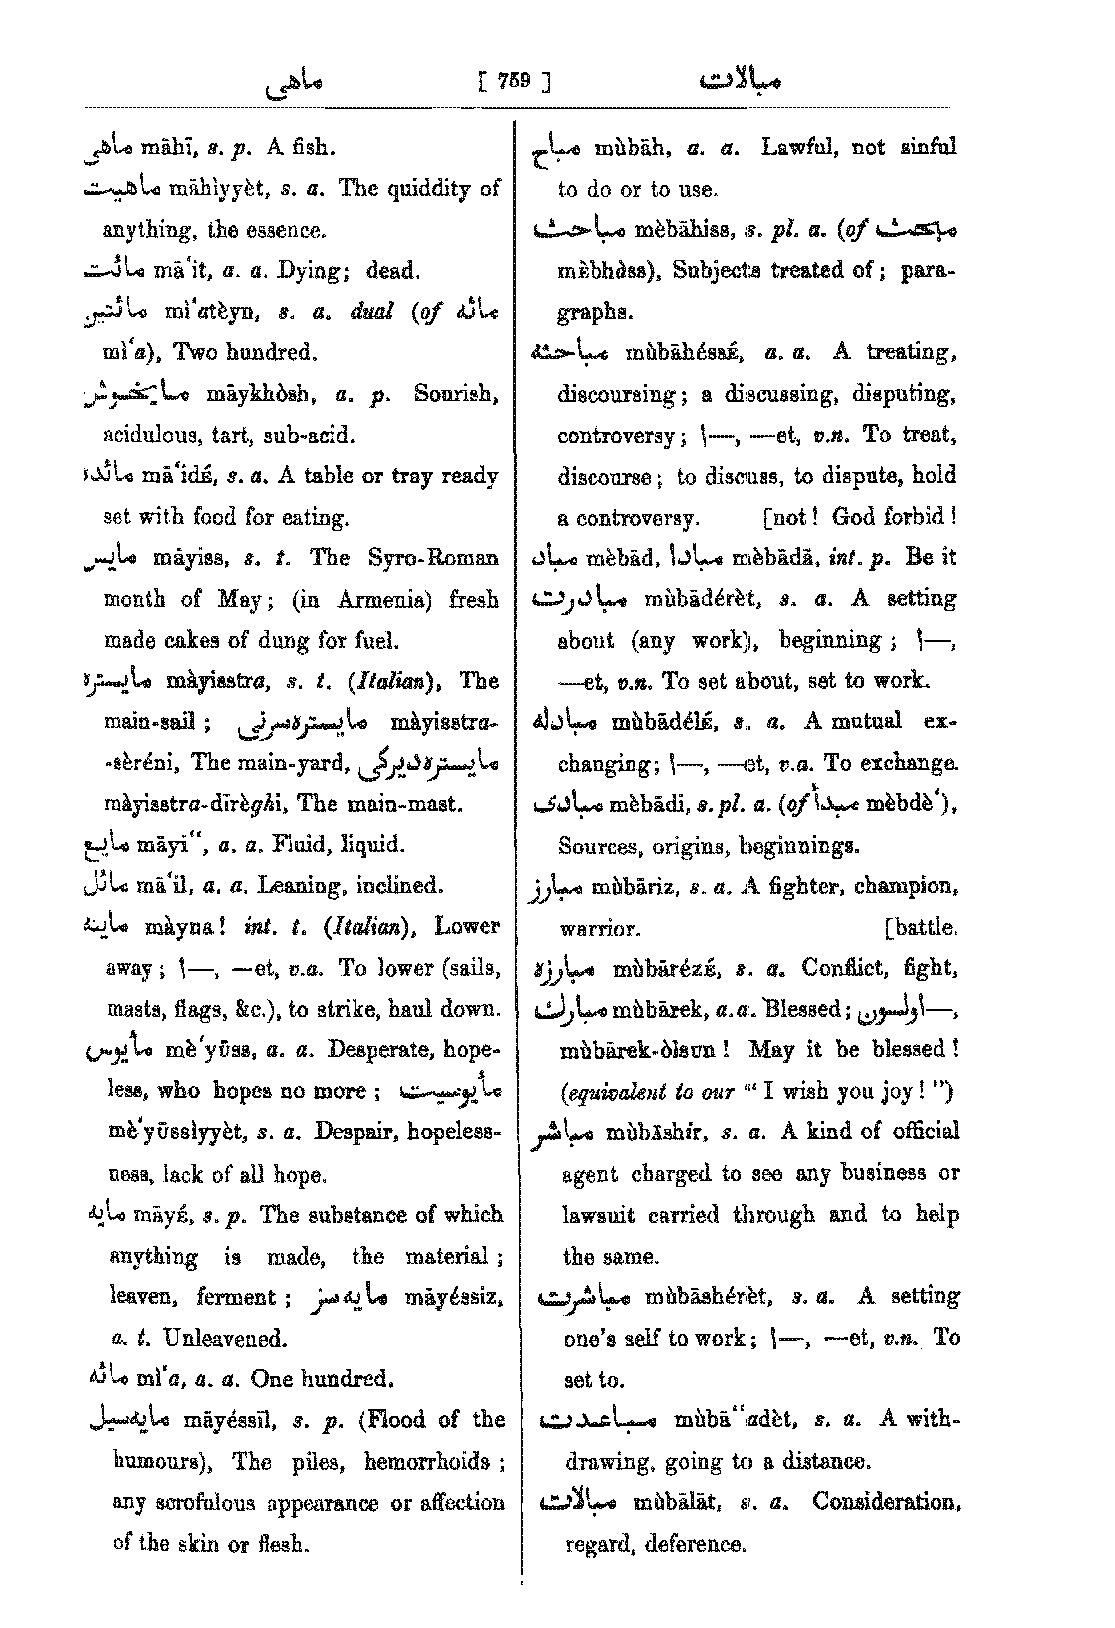 ماهی [ 759 ] مبالات
ماهی māhī, s. p. A fish.
ماهیت māhìyyèt, s. a. The quiddity of
anything, the essence.
مائت mā‘it, a. a. Dying; dead.
مائتین mì‘atèyn, s. a. dual (of مائه
mì‘a), Two hundred.
مایخوش māykhòsh, a. p. Sourish,
acidulous, tart, sub-acid.
مائده mā‘idé, s. a. A table or tray ready
set with food for eating.
مایس māyiss, s. t. The Syro-Roman
month of May; (in Armenia) fresh
made cakes of dung for fuel.
مایستره màyisstra, s. t. (Italian), The
main-sail; مایسترهسرنی màyisstra-
-sèréni, The main-yard, مایسترهدیرکی
màyisstra-dīrèghi, The main-mast.
مایع māyi‘‘, a. a. Fluid, liquid.
مائل mā‘il, a. a. Leaning, inclined.
ماینه màyna! int. t. (Italian), Lower
away; \—, —et, v.a. To lower (sails,
masts, flags, &c.), to strike, haul down.
مأیوس mè‘yūss, a. a. Desperate, hope-
less, who hopes no more; مأیوسیت
mè‘yūssìyyèt, s. a. Despair, hopeless-
ness, lack of all hope.
مایه māyé, s. p. The substance of which
anything is made, the material;
leaven, ferment; مایهسز māyéssiz,
a. t. Unleavened.
مائه mì‘a, a. a. One hundred.
مایهسیل māyéssīl, s. p. (Flood of the
humours), The piles, hemorrhoids;
any scrofulous appearance or affection
of the skin or flesh.
مباح mùbāh, a. a. Lawful, not sinful
to do or to use.
مباحث mèbāhiss, s. pl. a. (of مبحث
mèbhàss), Subjects treated of; para-
graphs.
مباحثه mùbāhéssé, a. a. A treating,
discoursing; a discussing, disputing,
controversy; \—, —et, v.n. To treat,
discourse; to discuss, to dispute, hold
a controversy. [not! God forbid!
مباد mèbād, مبادا mèbādā, int. p. Be it
مبادرت mùbādérèt, s. a. A setting
about (any work), beginning; \—,
—et, v.n. To set about, set to work.
مبادله mùbādélé, s. a. A mutual ex-
changing; \—, —et, v.a. To exchange.
مبادی mèbādi, s. pl. a. (of مبدأ mèbdè‘),
Sources, origins, beginnings.
مبارز mùbāriz, s. a. A fighter, champion,
warrior. [battle.
مبارزه mùbārézé, s. a. Conflict, fight,
مبارك mùbārek, a. a. Blessed; اولسون\—,
mùbārek-òlsun! May it be blessed!
(equivalent to our “ I wish you joy! ”)
مباشر mùbāshir, s. a. A kind of official
agent charged to see any business or
lawsuit carried through and to help
the same.
مباشرت mùbāshérèt, s. a. A setting
one's self to work; \—, —et, v.n. To
set to.
مباعدت mùbā‘‘adèt, s. a. A with-
drawing, going to a distance.
مبالات mùbālāt, s. a. Consideration,
regard, deference.